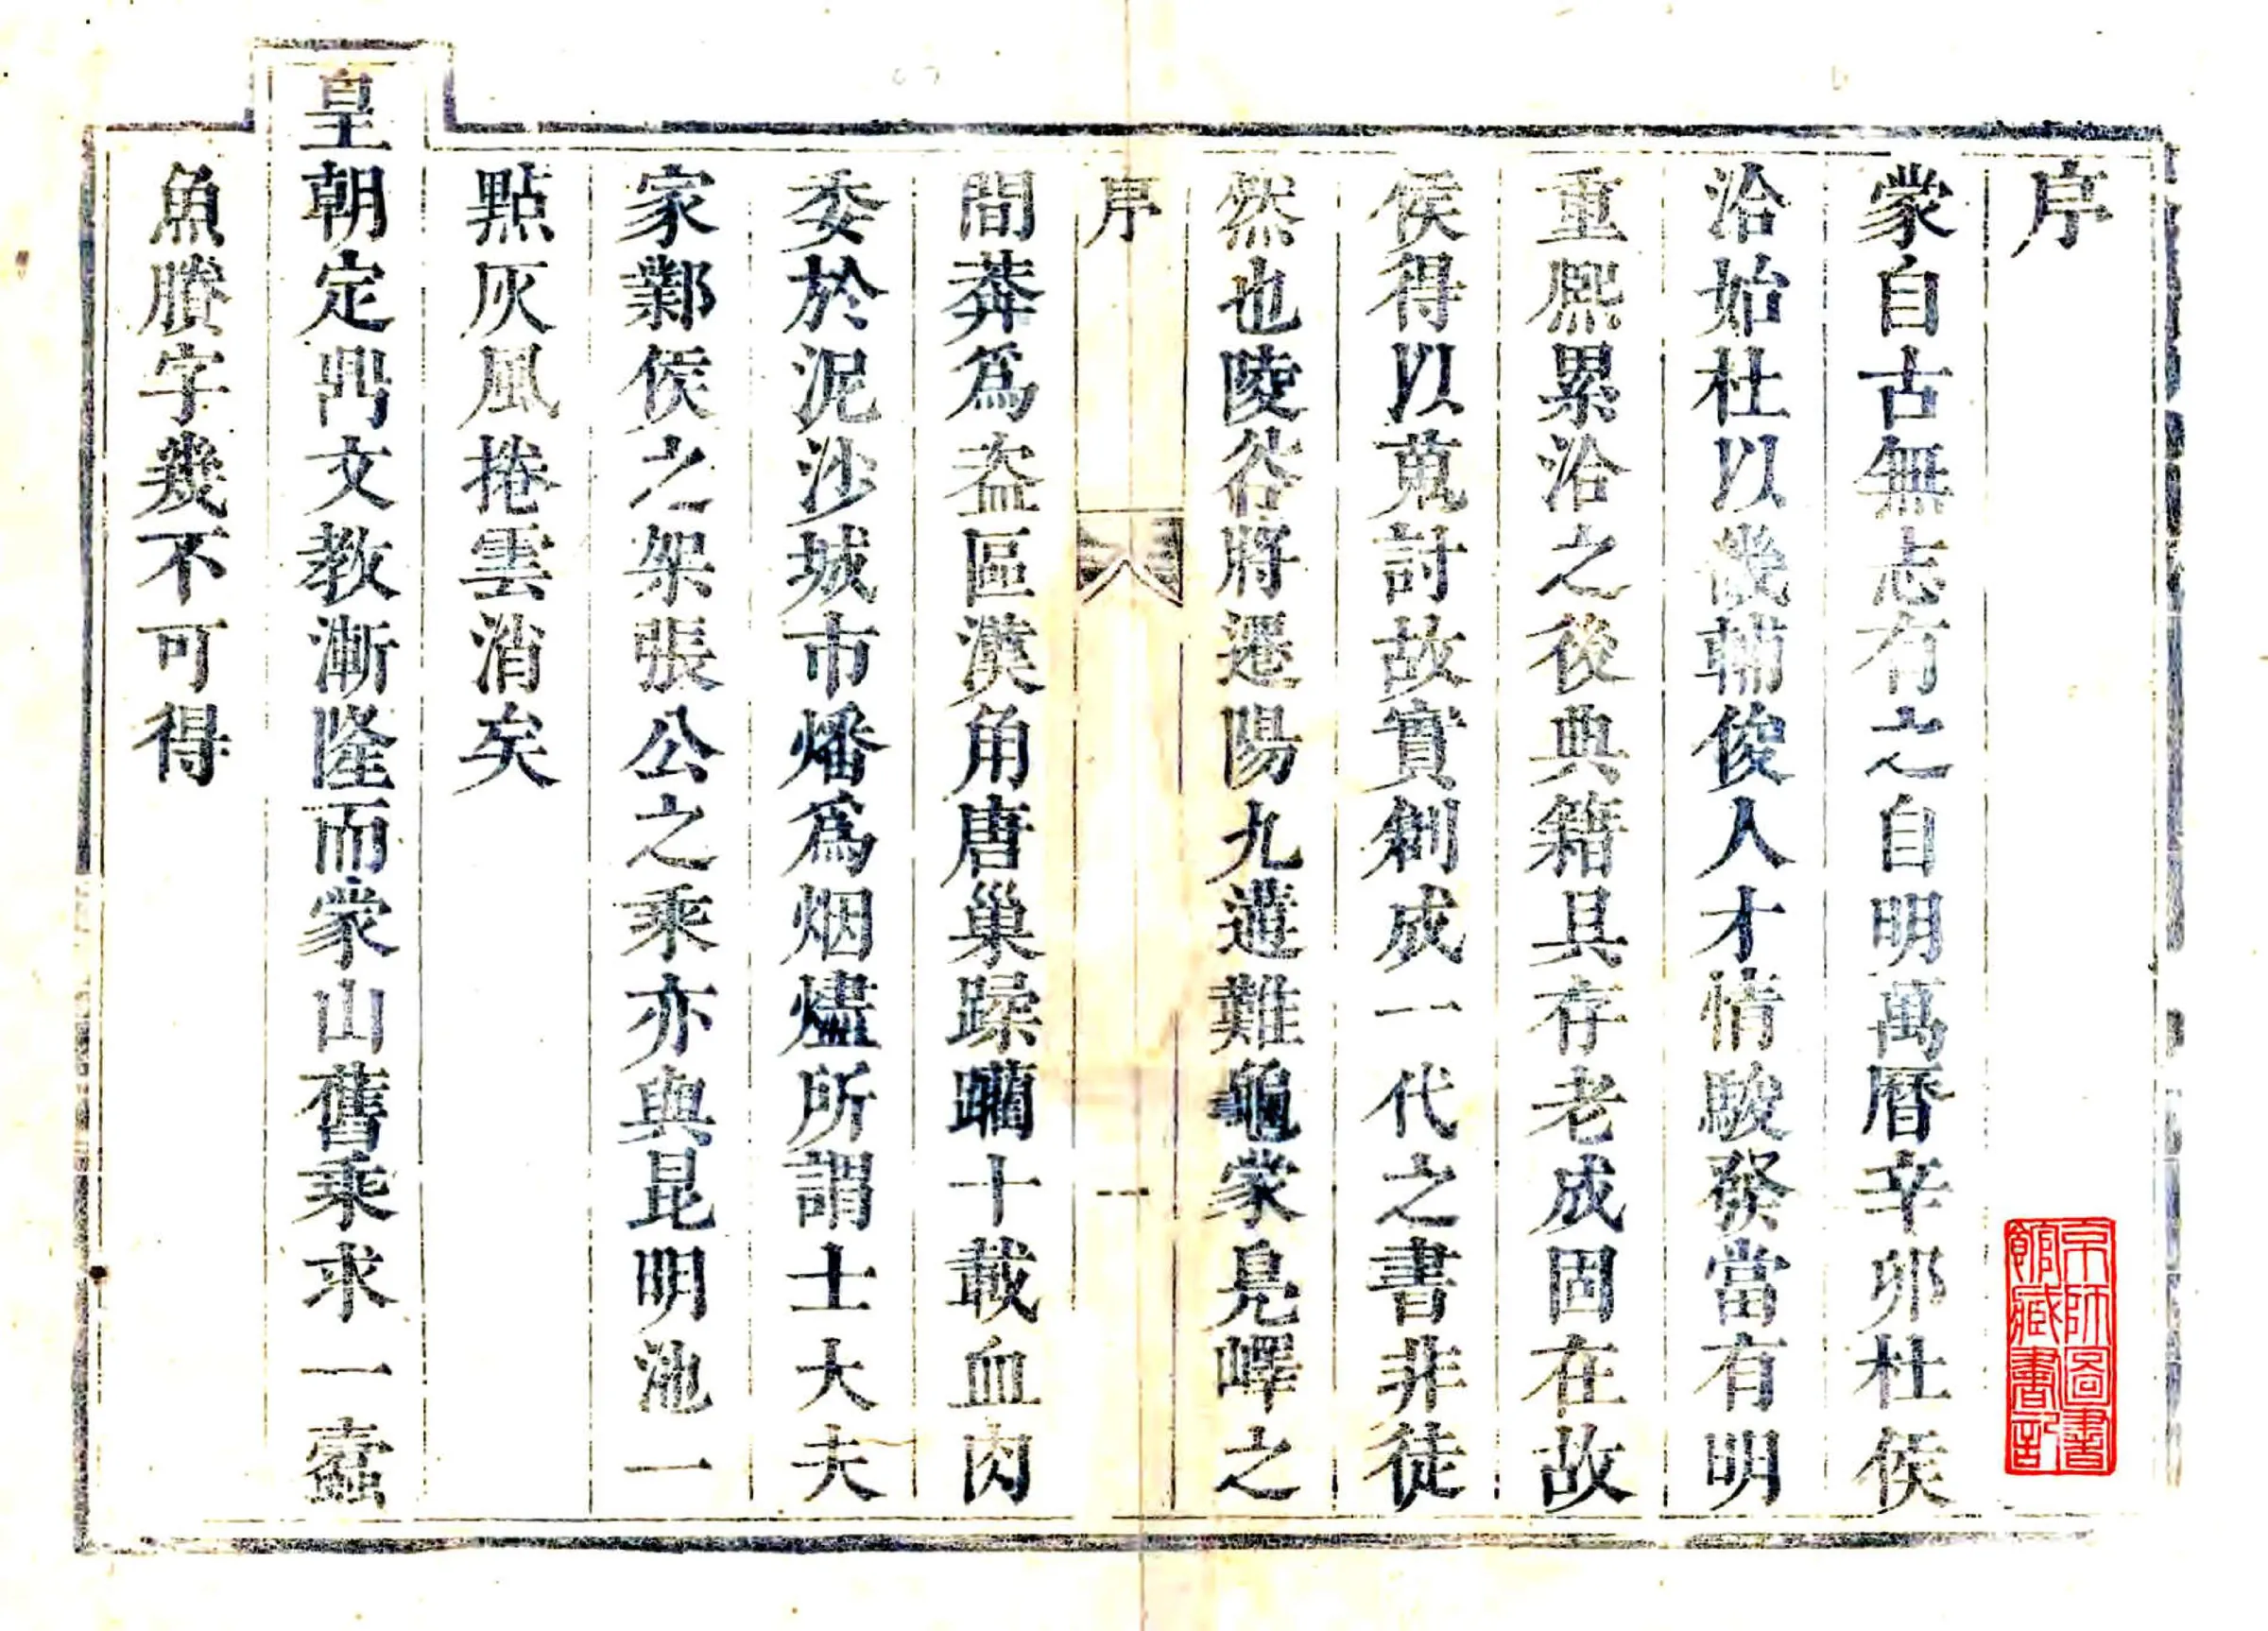 序
蒙自古無志有之自明萬曆辛卯杜侯
洽始杜以畿輔俊人才情駿發當有明
重熙累洽之後典籍具存老成固在故
侯得以蒐討故實創成一代之書非徒
然也陵谷將遷陽九遘難龜蒙鳧嶧之
序
一
間莽為盗區漢角唐巢蹂躪十載血肉
委於泥沙城市燔為烟燼所謂士大夫
家鄴侯之架張公之乘亦與昆明池一
點灰風捲雲消矣
皇朝定鼎文教漸隆而蒙山舊乘求一蠹
魚賸字幾不可得
京師圖書
館藏書記